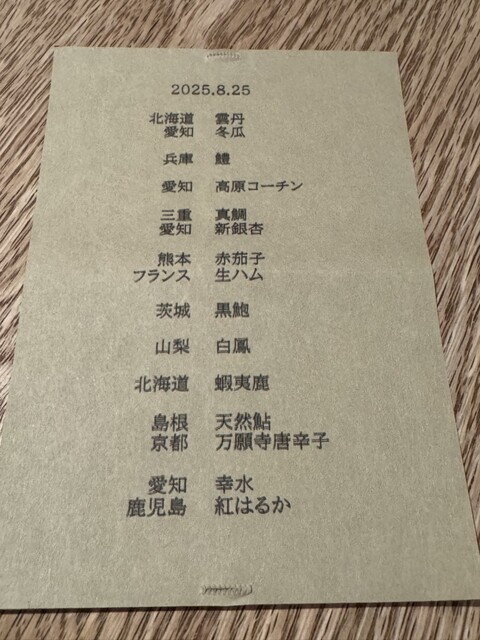 2025.8.25
北海道 雲丹
愛知 冬瓜
兵庫 鱧
愛知 高原コーチン
三重 真鯛
愛知 新銀杏
熊本 赤茄子
フランス 生ハム
茨城 黒鮑
山梨 白鳳
北海道 蝦夷鹿
島根 天然鮎
京都 万願寺唐辛子
愛知 幸水
鹿児島 紅はるか